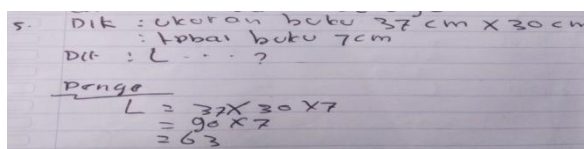 5. Dik : ukuran buku 37 cm x 30 cm
: tebal buku 7cm
Dit : L . . . ?
Penye
L = 37 x 30 x 7
= 90 x 7
= 63